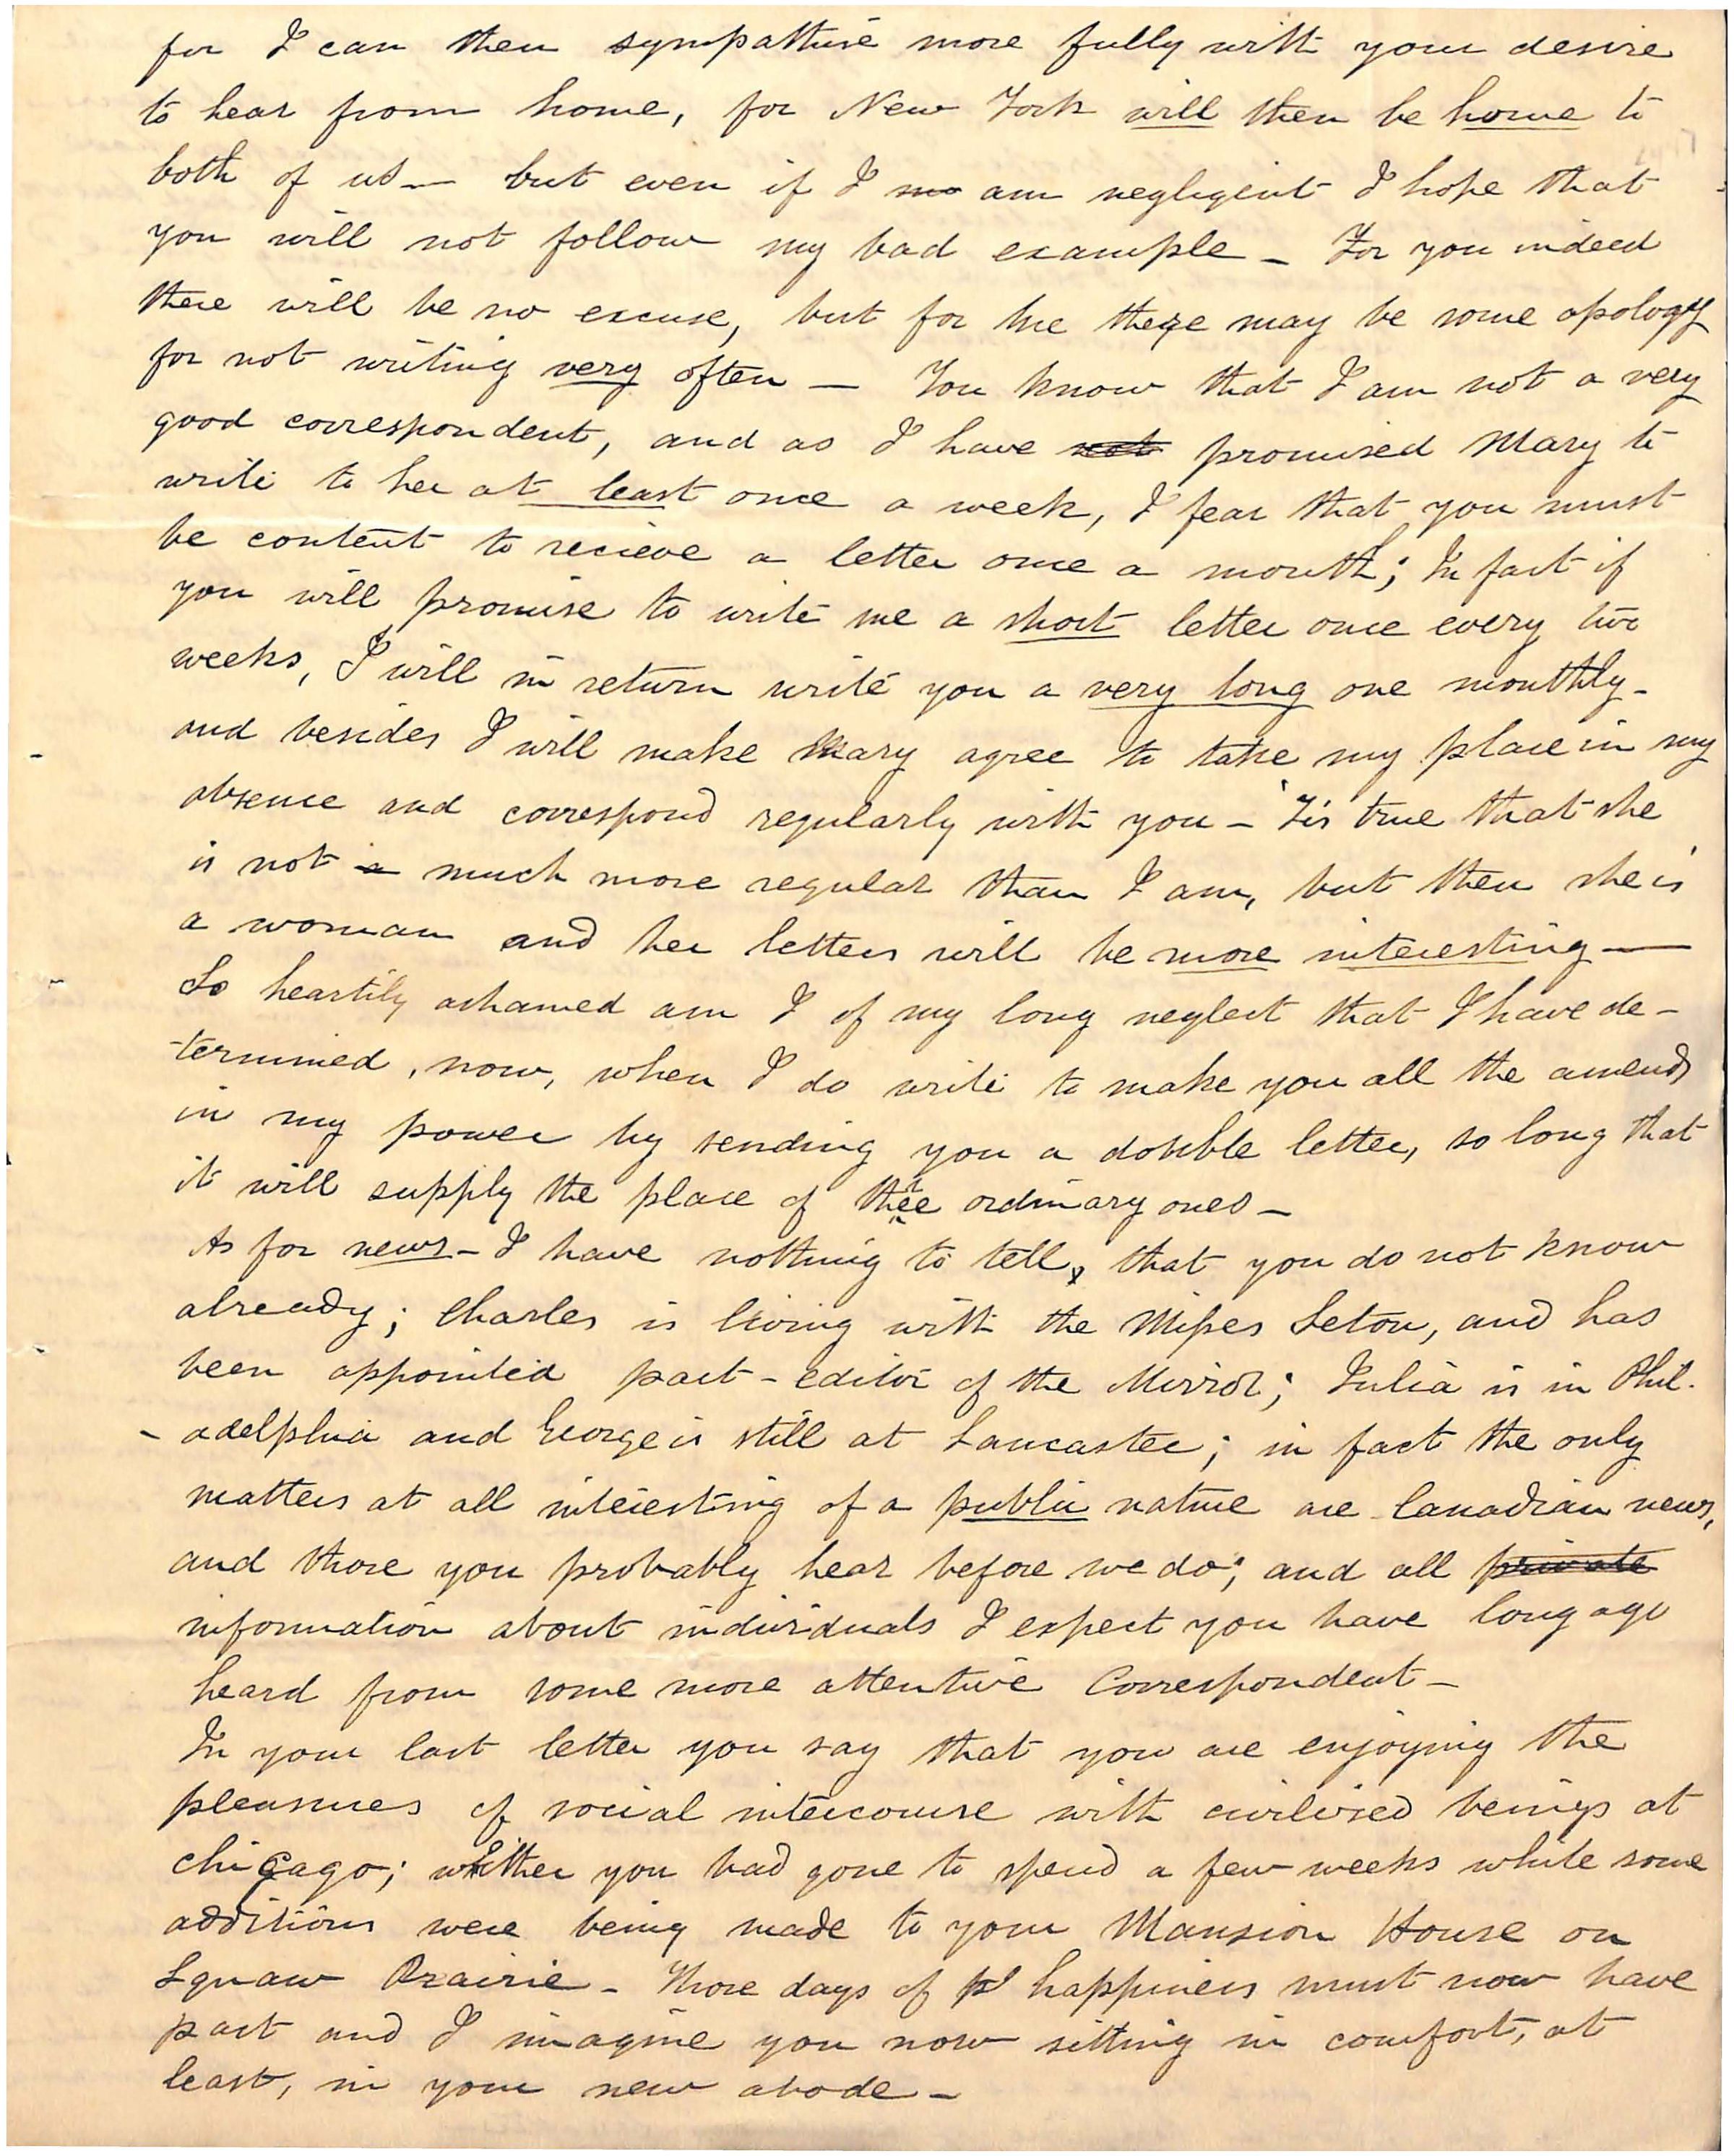 for I can then sympathise more fully with your desire
to hear from home, for New York will then be home to
both of us — but even if I no am negligent I hope that
you will not follow my bad example — For you indeed
there will be no excuse, but for me there may be some apology
for not writing very often — You know that I am not a very
good correspondent, and as I have not promised Mary to
write to her at least once a week, I fear that you must
be content to recieve a letter once a month; In fact if
you will promise to write me a short letter once every two
weeks, I will in return write you a very long one monthly —
and besides I will make Mary agree to take my place in my
absence and correspond regularly with you — 'Tis true that she
is not a much more regular than I am, but then she is
a woman and her letters will be more interesting —
So heartily ashamed am I of my long neglect that I have de-
termined, now, when I do write to make you all the amends
in my power by sending you a double letter, so long that
it will supply the place of three ordinary ones —
As for news — I have nothing to tell, that you do not know
already; Charles is living with the Misses Seton, and has
been appointed part-editor of the Mirror; Julia is in Phil-
-adelphia and George is still at Lancaster; in fact the only
matters at all interesting of a public nature are Canadian news,
and those you probably hear before we do; and all private
information about individuals I expect you have long ago
heard from some more attentive Correspondent —
In your last letter you say that you are enjoying the
pleasures of social intercourse with civilised beings at
Chicago; whither you had gone to spend a few weeks while some
additions were being made to your Mansion House on
Squaw Prairie — Those days of pl happiness must now have
past and I imagine you now sitting in comfort, at
least, in your new abode —